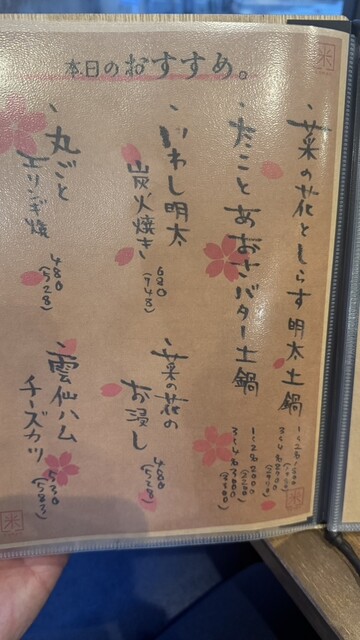 本日のおすすめ。
菜の花としらす明太土鍋
3〜4名
たことあおさバター土鍋
1〜2名 2000
(2200)
3〜4名 3000
(3300)
いわし明太
炭火焼き
680
(748)
菜の花の
お浸し
480
(528)
丸ごと
エリンギ焼
480
(528)
雲仙ハム
チーズカツ
530
(583)
米
米
米